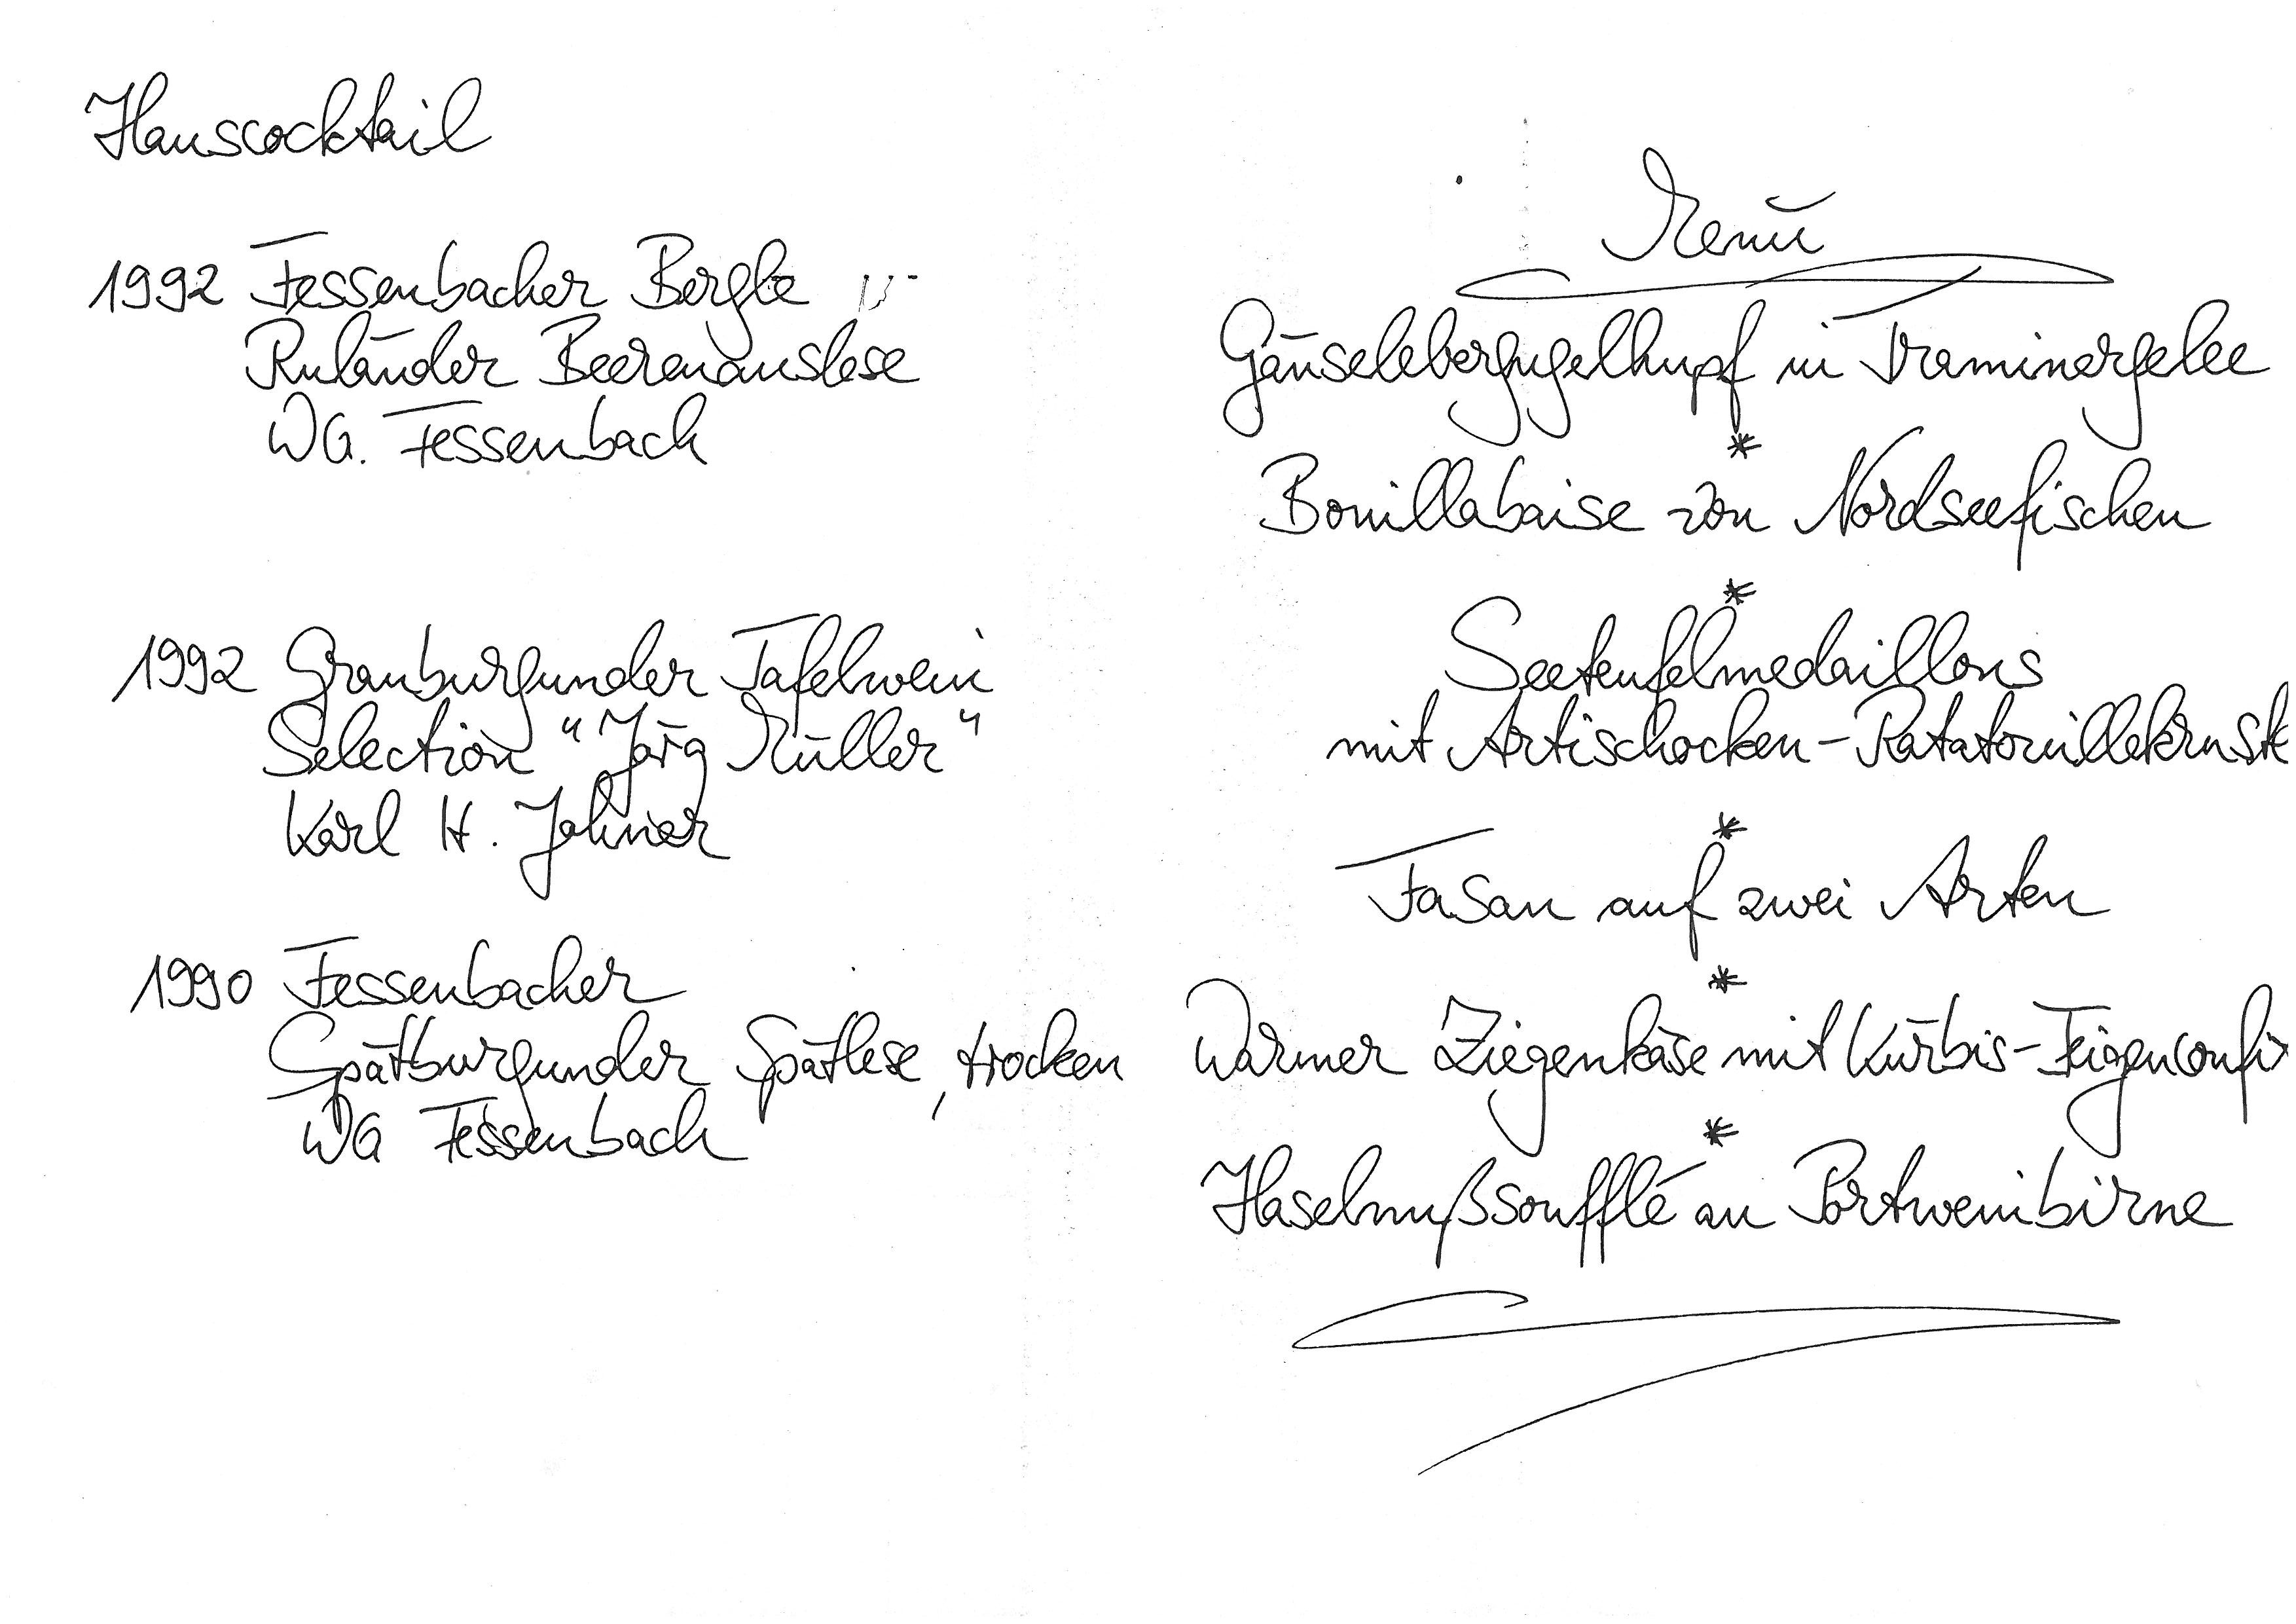 Hauscocktail
1992 Fessenbacher Bergle
Ruländer Beerenauslese
WG. Fessenbach
1992 Grauburgunder Tafelwein
Selection "Jörg Müller"
Karl H. Johner
1990 Fessenbacher
Spätburgunder Spätlese, trocken
WG Fessenbach
Menü
Gänselebergugelhupf in Traminergelee
*
Bouillabaise von Nordseefischen
*
Seeteufelmedaillons
mit Artischocken-Ratatouillekruste
*
Fasan auf zwei Arten
*
Warmer Ziegenkäse mit Kürbis-Feigenconfi
*
Haselnußsoufflé an Portweinbirne